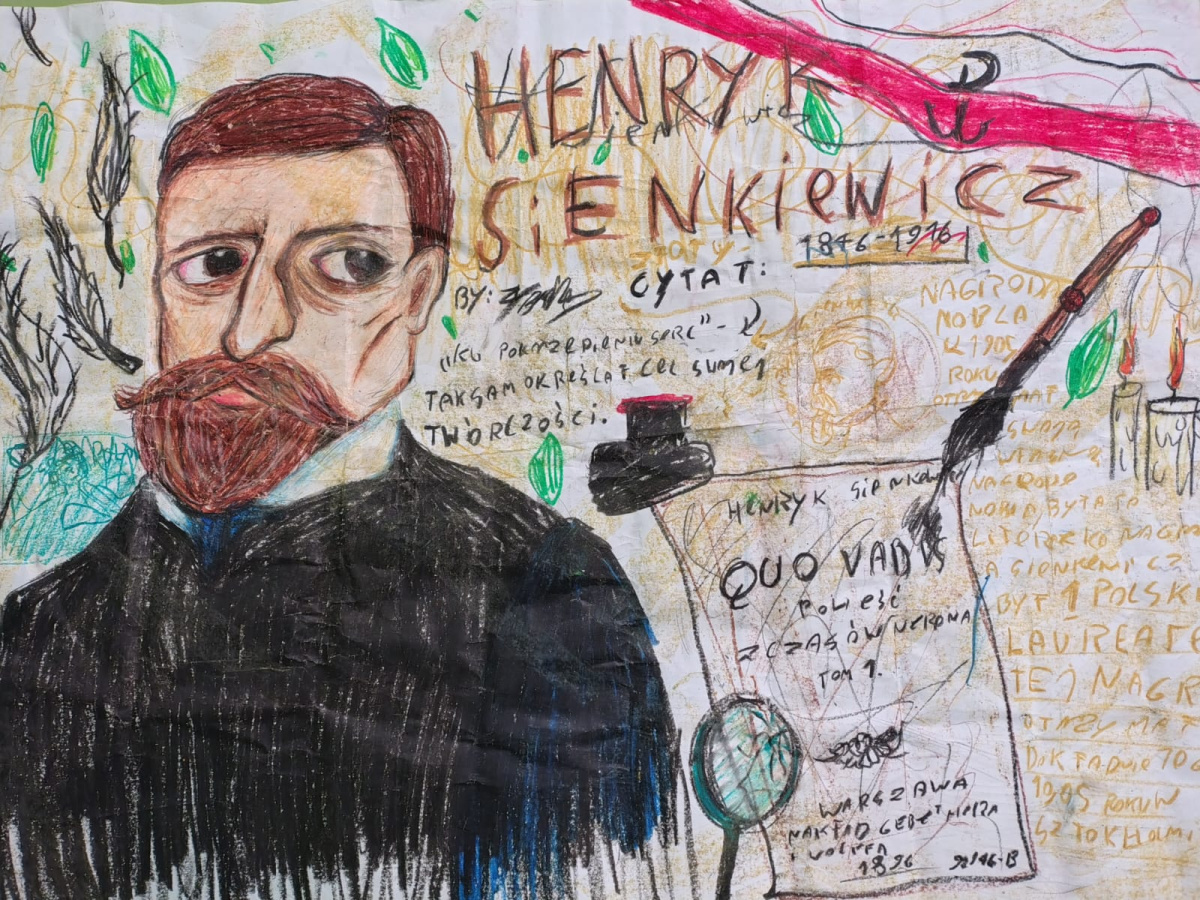 HENRYK
SiENKiewicz
1846-1916
BY:
CYTAT:
„KU POKRZEPIENIU SERC" -
TAK SAM OKREŚLAŁ CEL SWMEJ
TWÓRCZOŚCI.
P
W
NAGRODA
NOBLA
W 1905
ROKU
OTRZYMAŁ
SWOJĄ
WŁASNĄ
NAGRODĘ
NOBLA BYŁA TO
LITERACKO NAGR
A SIENKIEWICZ
BYŁ 1 POLSKI
LAUREATE
TEJ NAGR
OTRZYMAŁ
DOKŁADNIE 10
1905 ROKU W
SZTOKHOLMI
HENRYK SIENKIEWI
QUO VADIS
POWIEŚĆ
Z CZASÓW NERONA
TOM 1.
WARSZAWA
NAKŁAD GEBETHNERA
I WOLFFA
1896